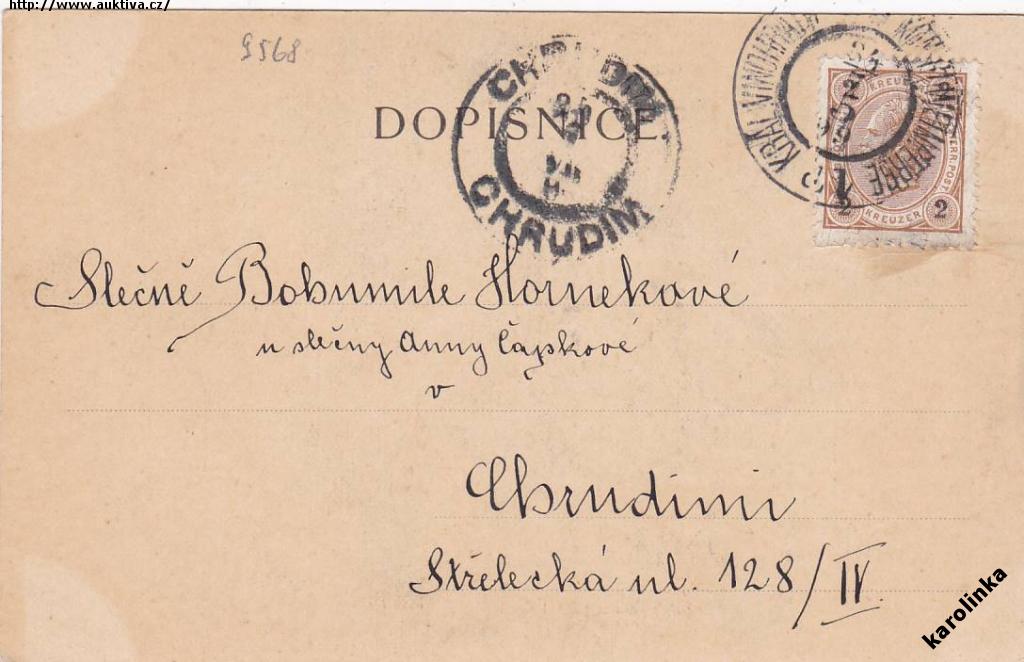 http://www.auktiva.cz/
9568
DOPISNICE
CHRUDIM
CHRUDIM
KRÁL. VINOHRADY
KREUZER
2 2
KREUZER
Slečně Bohumile Hornekové
u slečny Anny Čapkové
v
Chrudimi
Střelecká ul. 128/IV.
karolinka